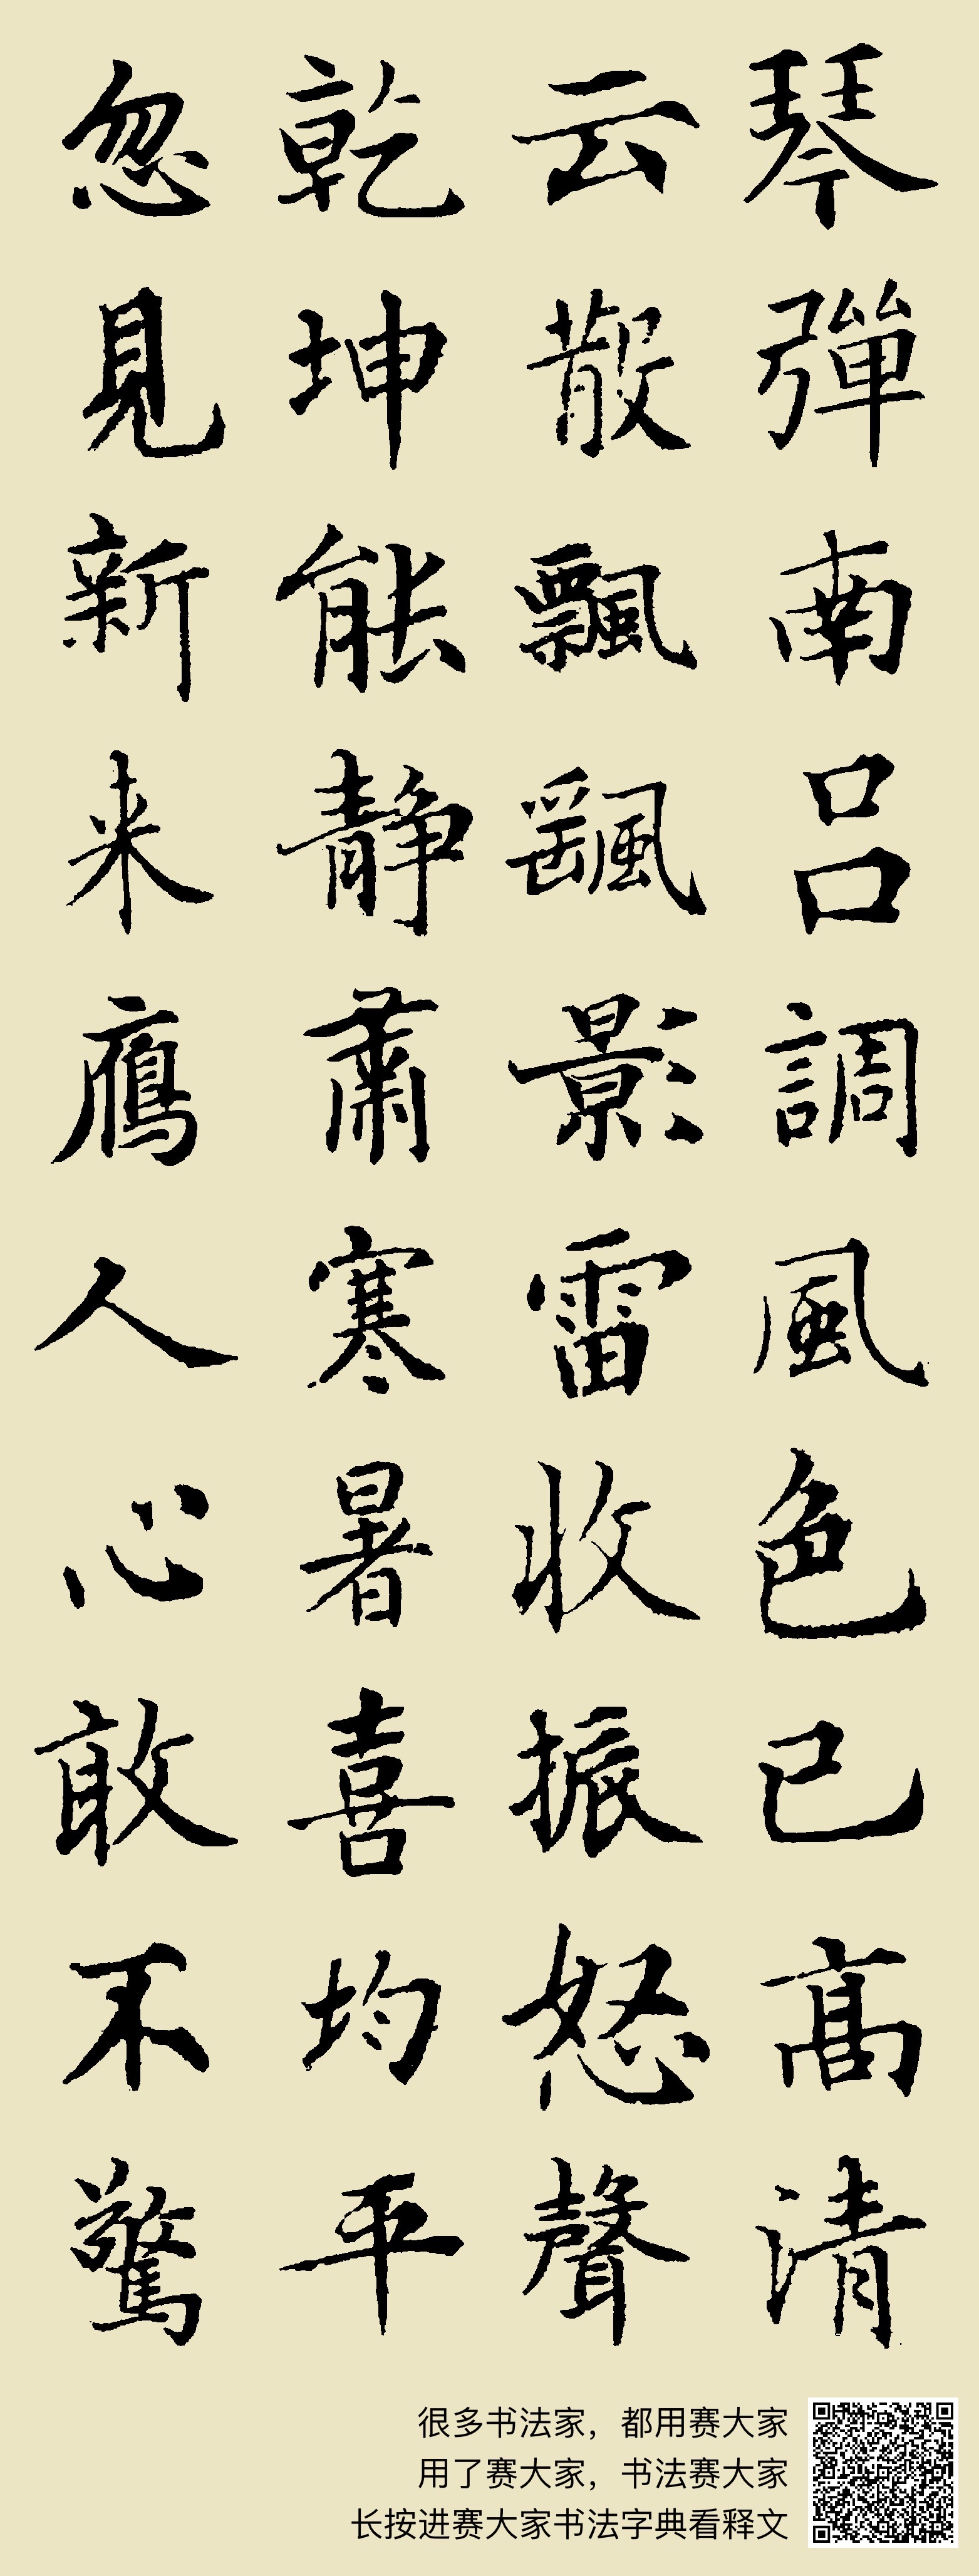 琴彈南吕調風色已高清
云散飄颻影雷收振怒聲
乾坤能靜肅寒暑喜均平
忽見新来鴈人心敢不驚
很多书法家，都用赛大家
用了赛大家，书法赛大家
长按进赛大家书法字典看释文